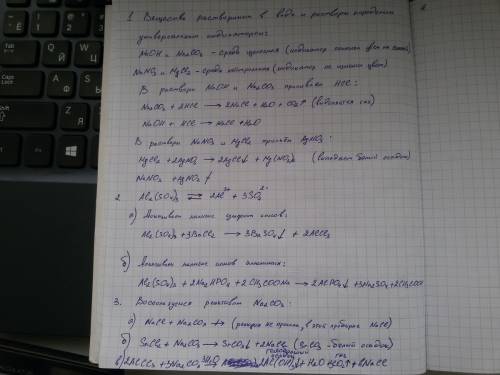 1. Вещества растворим в воде и растворы
универсальным индикатором:
NaOH и Na₂CO₃ - среда щелочная (индикатор
NaNO₃ и MgCl₂ - среда нейтральная (индикатор не цвет)
В растворы NaOH и Na₂CO₃ приливаем HCl:
Na₂CO₃ + 2HCl → 2NaCl + H₂O + CO₂↑ (выделяется газ)
NaOH + HCl → NaCl + H₂O
В растворы NaNO₃ и MgCl₂ прильём AgNO₃:
MgCl₂ + 2AgNO₃ → 2AgCl↓ + Mg(NO₃)₂ (выпадает белый осадок)
NaNO₃ + AgNO₃ ↛
2. Al₂(SO₄)₃ ⇄ 2Al³⁺ + 3SO₄²⁻
а) наличие сульфат ионов:
Al₂(SO₄)₃ + 3BaCl₂ → 3BaSO₄↓ + 2AlCl₃
б) наличие ионов алюминия:
Al₂(SO₄)₃ + 2Na₂HPO₄ + 2CH₃COONa → 2AlPO₄↓ + 3Na₂SO₄ + 2CH₃COOH
3. Воспользуемся реактивом Na₂CO₃:
а) NaCl + Na₂CO₃ ↛ (реакция не прошла, в этой пробирке NaCl)
б) SrCl₂ + Na₂CO₃ → SrCO₃↓ + 2NaCl (SrCO₃ - белый осадок)
в) 2AlCl₃ + 3Na₂CO₃ 3H₂O → 2Al(OH)₃↓ + CO₂↑ + 6NaCl